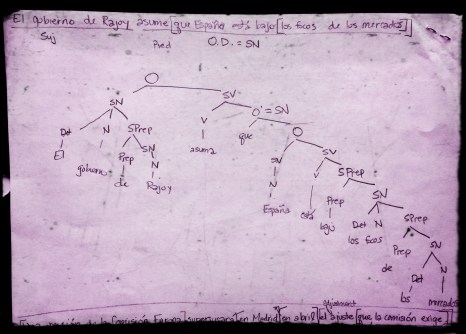 El gobierno de Rajoy asume [que España está bajo [los focos de los mercados]]
Suj Pred O.D. = SN
O
SN SV
Det N SPrep V O' = SN
El gobierno Prep SN asume que O
de N SN SV
Rajoy N V SPrep
España está Prep SN
bajo Det N SPrep
los focos Prep SN
de Det N
los mercados
de la Comisión Europea supervisará [en Madrid] [en abril] [el ajuste [que la comisión exige]]